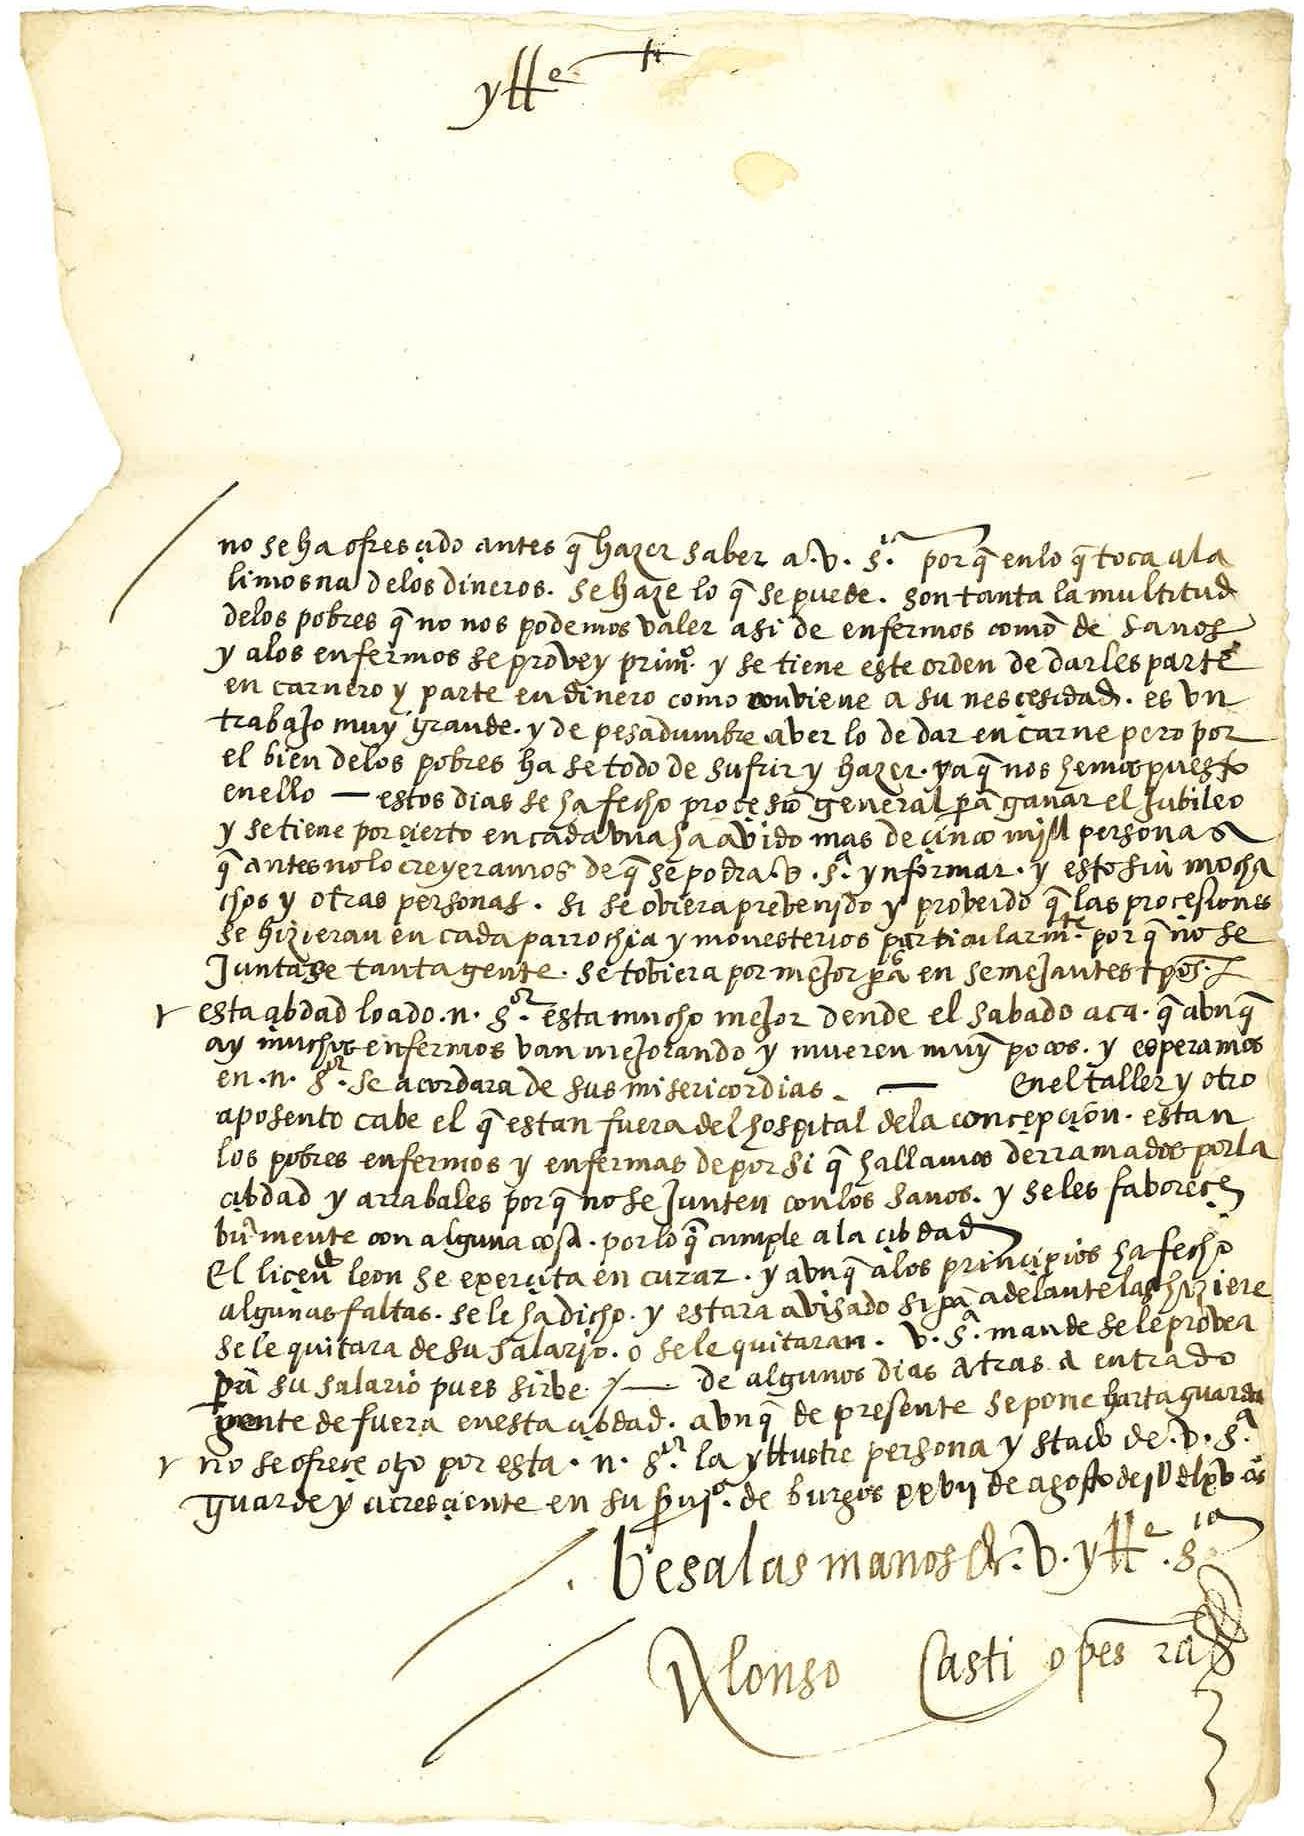 ylle
no se ha ofresçido antes q̃ hazer saber a. v. s.ª por q̃ en lo q̃ toca a la
limosna de los dineros. se haze lo q̃ se puede. son tanta la multitud
de los pobres q̃ no nos podemos valer asi de enfermos como de sanos
y a los enfermos se provey prim.º y se tiene este orden de darles parte
en carnero y parte en dinero como conviene a su nesçesidad. es vn
trabajo muy grande. y de pesadumbre aver lo de dar en carne pero por
el bien de los pobres ha se todo de sufrir y hazer. ya q̃ nos hemos puesto
en ello — estos dias se ha fecho proçesiõ general p̃a ganar el Jubileo
y se tiene por çierto en cada vna ha avido mas de çinco mill personas
q̃ antes no lo creyeramos de q̃ se podra. v. s.ª ynformar. y esto sin mocha
chos y otras personas. si se obiera prebenido y probeido q̃ las procesiones
se hizieran en cada parrochia y monesterios particularmte. por q̃ no se
Juntase tanta gente. se tobiera por mejor p̃a en semejantes tpos.
esta çibdad loado. n. s.or esta mucho mejor dende el sabado aca. q̃ avnq̃
ay muchos enfermos van mejorando y mueren muy pocos. y esperamos
en. n. s.or se acordara de sus misericordias. — en el taller y otro
aposento cabe el q̃ estan fuera del hospital de la conçepçion. estan
los pobres enfermos y enfermas de por si q̃ hallamos derramados por la
çibdad y arrabales por q̃ no se Junten con los sanos. y se les faboreçe
buẽmente con alguna cosa. por lo q̃ cumple a la çibdad
El liçençdo leon se exerçita en curar. y avnq̃ a los prinçipios ha fecho
algunas faltas. se le ha dicho. y estara avisado si p̃a adelante las hiziere
se le quitara de su salario. o se le quitaran. v. s.ª mande se le provea
p̃a su salario pues sirbe. — de algunos dias atras a entrado
gente de fuera en esta çibdad. avnq̃ de presente se pone harta guarda
no se ofreçe otro por esta. n. s.or la yllustre persona y stado de. v. s.ª
guarde y acresçiente en su s̃viçº. de burgos xxvij de agosto de jU dlxv aºs
besa las manos de. v. ylle. s.ia
Alonso Casti